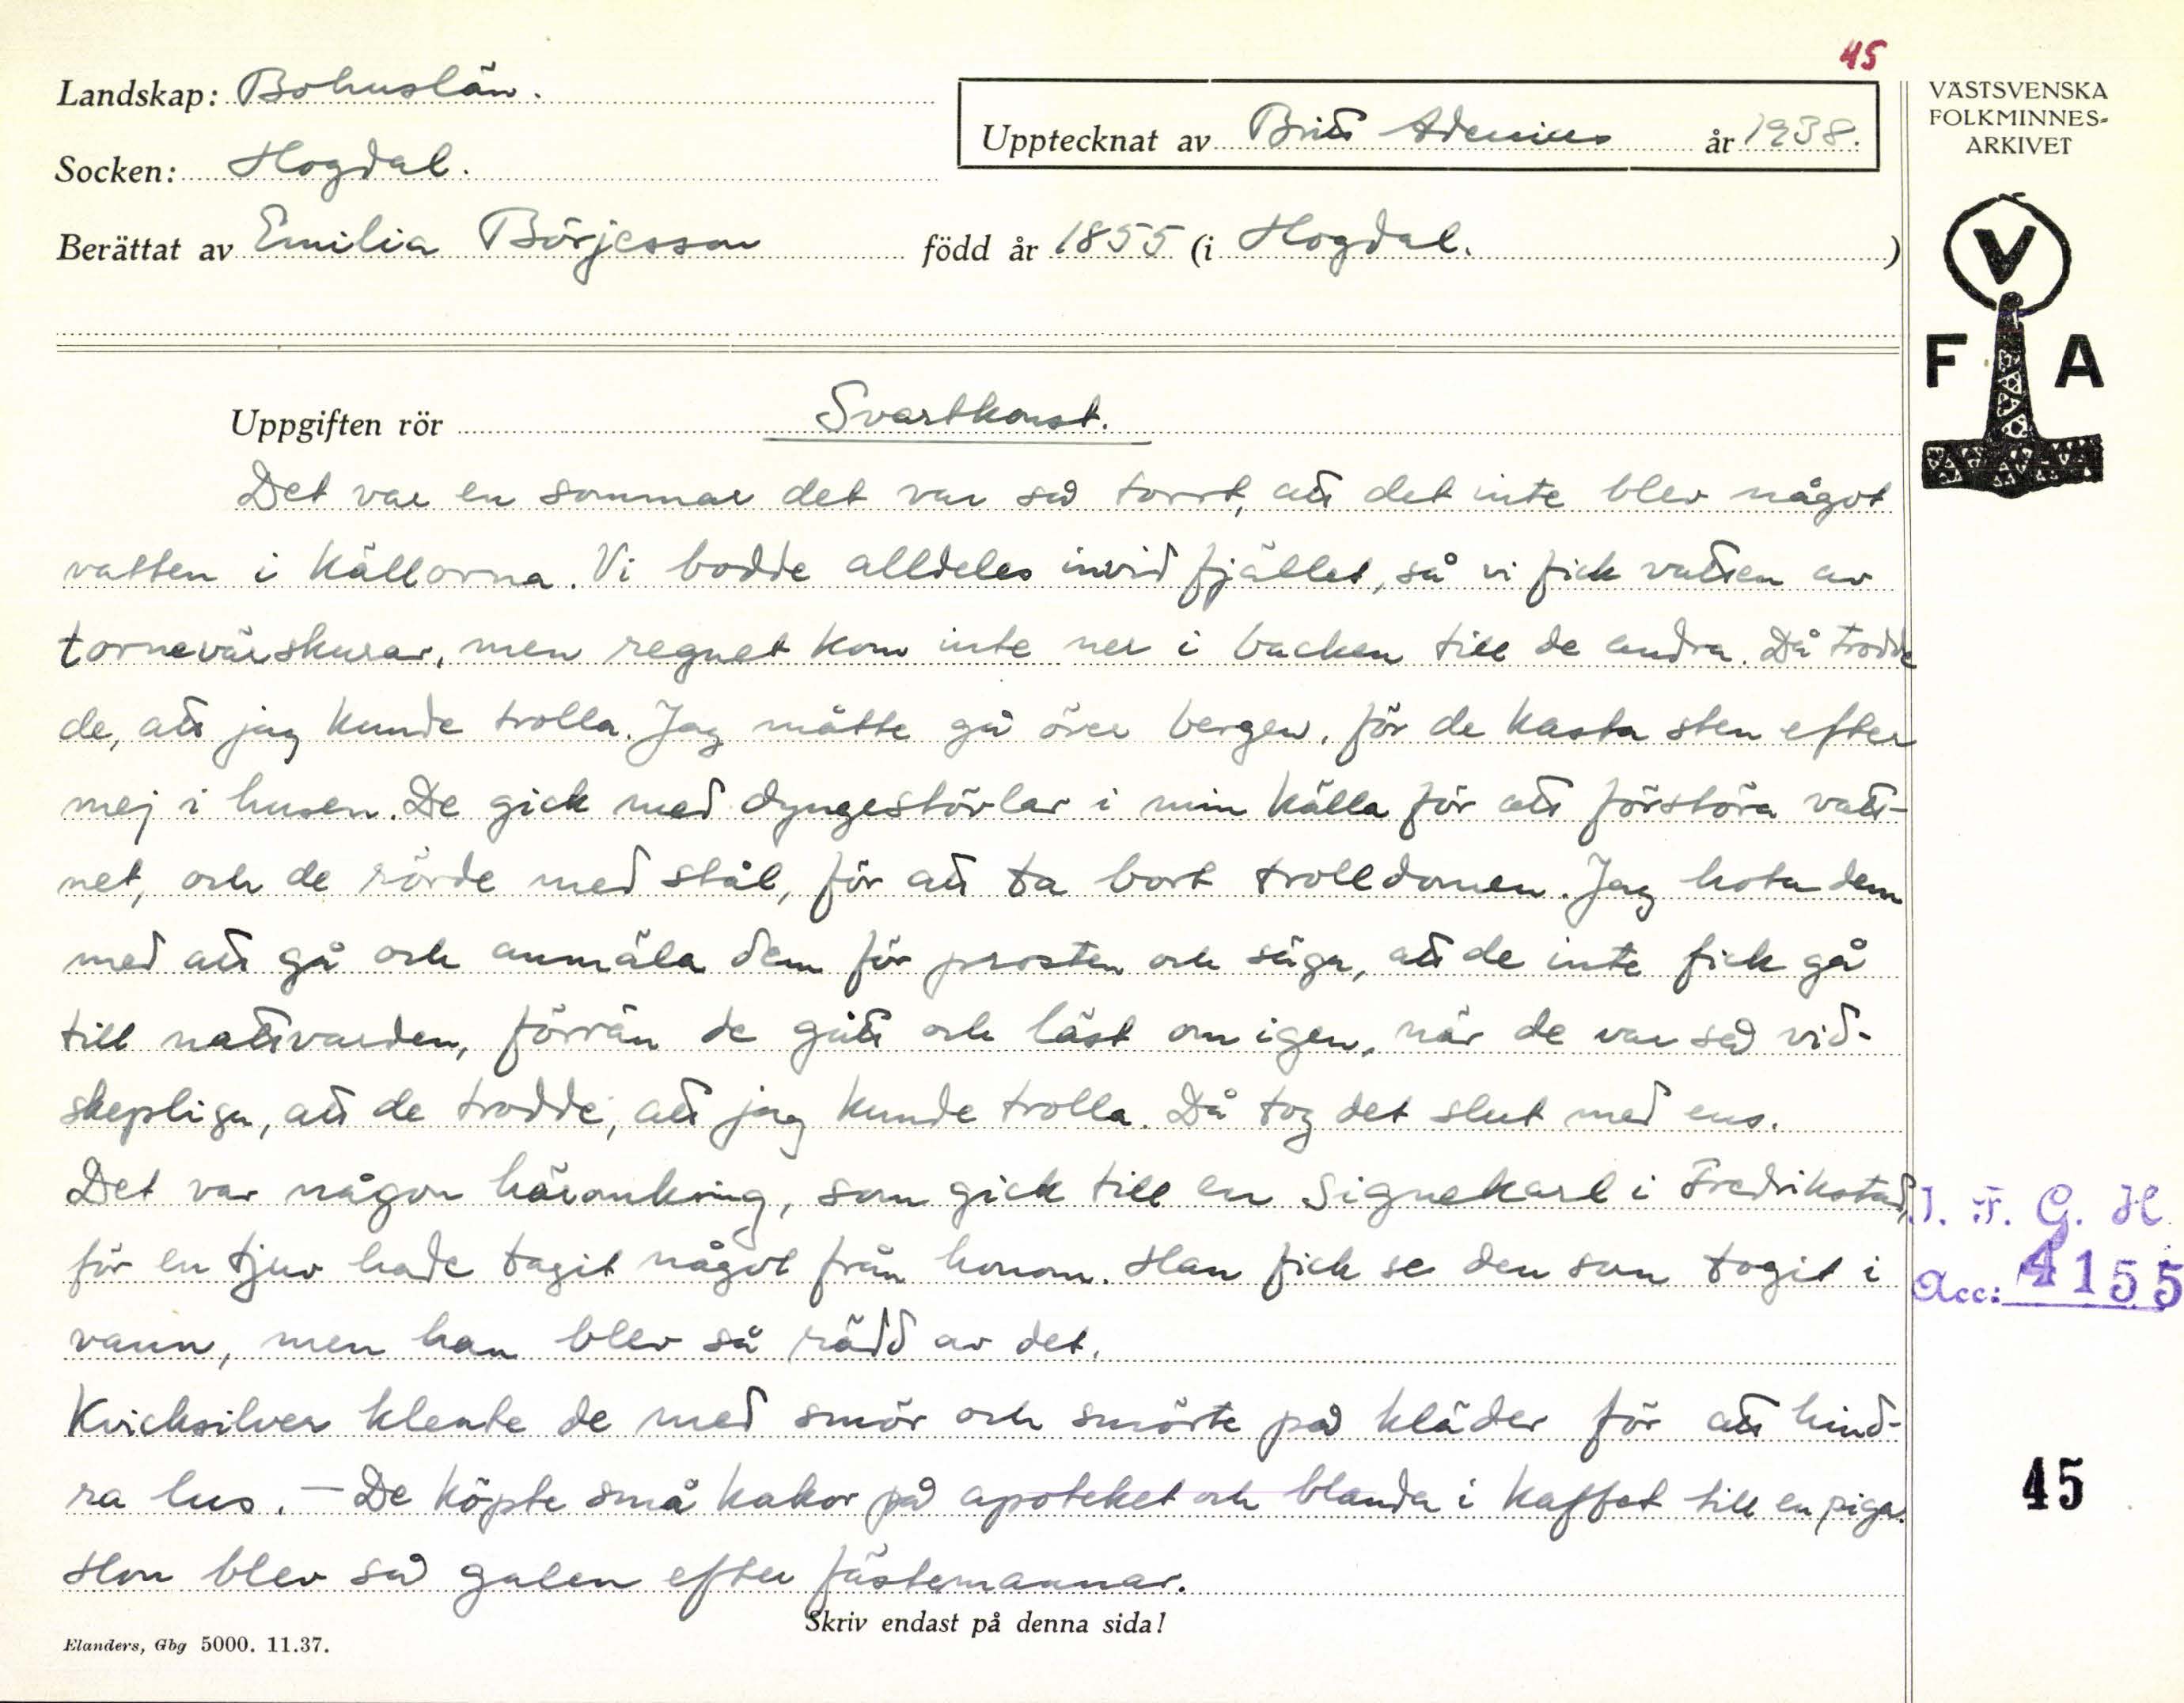 45
Landskap: Bohuslän.
Upptecknat av Britt Adenius år 1938.
Socken: Hogdal.
Berättat av Emilia Börjesson född år 1855 (i Hogdal. )
VÄSTSVENSKA
FOLKMINNES-
ARKIVET
V
F A
Uppgiften rör Svartkonst.
Det var en sommar det var så torrt, att det inte blev något
vatten i källorna. Vi bodde alldeles invid fjället, så vi fick vatten av
tornevärskurar, men regnet kom inte ner i backen till de andra. Då trodde
de, att jag kunde trolla. Jag måtte gå över bergen, för de kasta sten efter
mej i husen. De gick med dyngestövlar i min källa för att förstöra vatt-
net, och de rörde med stål, för att ta bort trolldomen. Jag hota dem
med att gå och anmäla dem för prosten och säga, att de inte fick gå
till nattvarden, förrän de gått och läst om igen, när de var så vid-
skepliga, att de trodde, att jag kunde trolla. Då tog det slut med ens.
Det var någon häromkring, som gick till en Signekarl i Fredrikstad,
för en tjuv hade tagit något från honom. Han fick se den som togit i
vann, men han blev så rädd av det.
Kvicksilver klente de med smör och smörte på kläder för att hind-
ra lus. — De köpte små kakor på apoteket och blanda i kaffet till en piga.
Hon blev så galen efter fästemannar.
J. F. G. H.
Acc: 4155
45
Skriv endast på denna sida!
Elanders, Gbg 5000. 11.37.